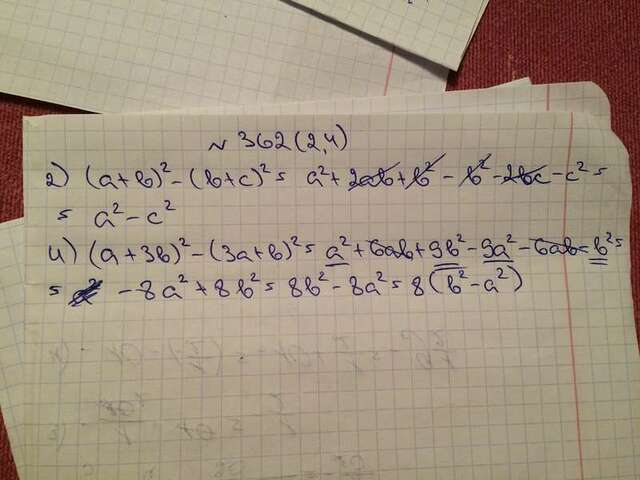 № 362 (2,4)
2) (a+b)² - (b+c)² = a² + 2ab + b² - b² - 2bc - c² =
= a² - c²
4) (a+3b)² - (3a+b)² = a² + 6ab + 9b² - 9a² - 6ab - b² =
= -8a² + 8b² = 8b² - 8a² = 8(b² - a²)